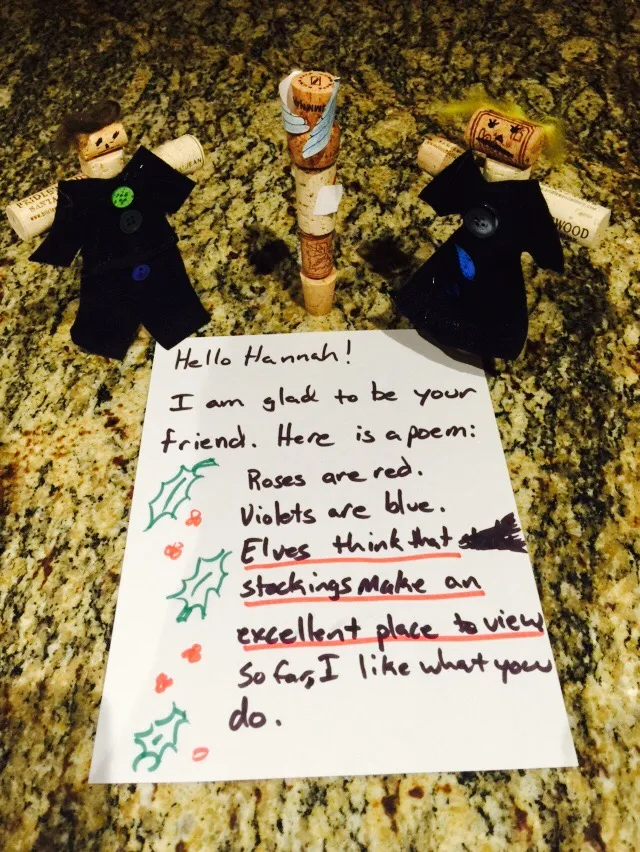 WOOD
Hello Hannah!
I am glad to be your
friend. Here is a poem:
Roses are red.
Violets are blue.
Elves think that
stockings make an
excellent place to view
So far, I like what you
do.